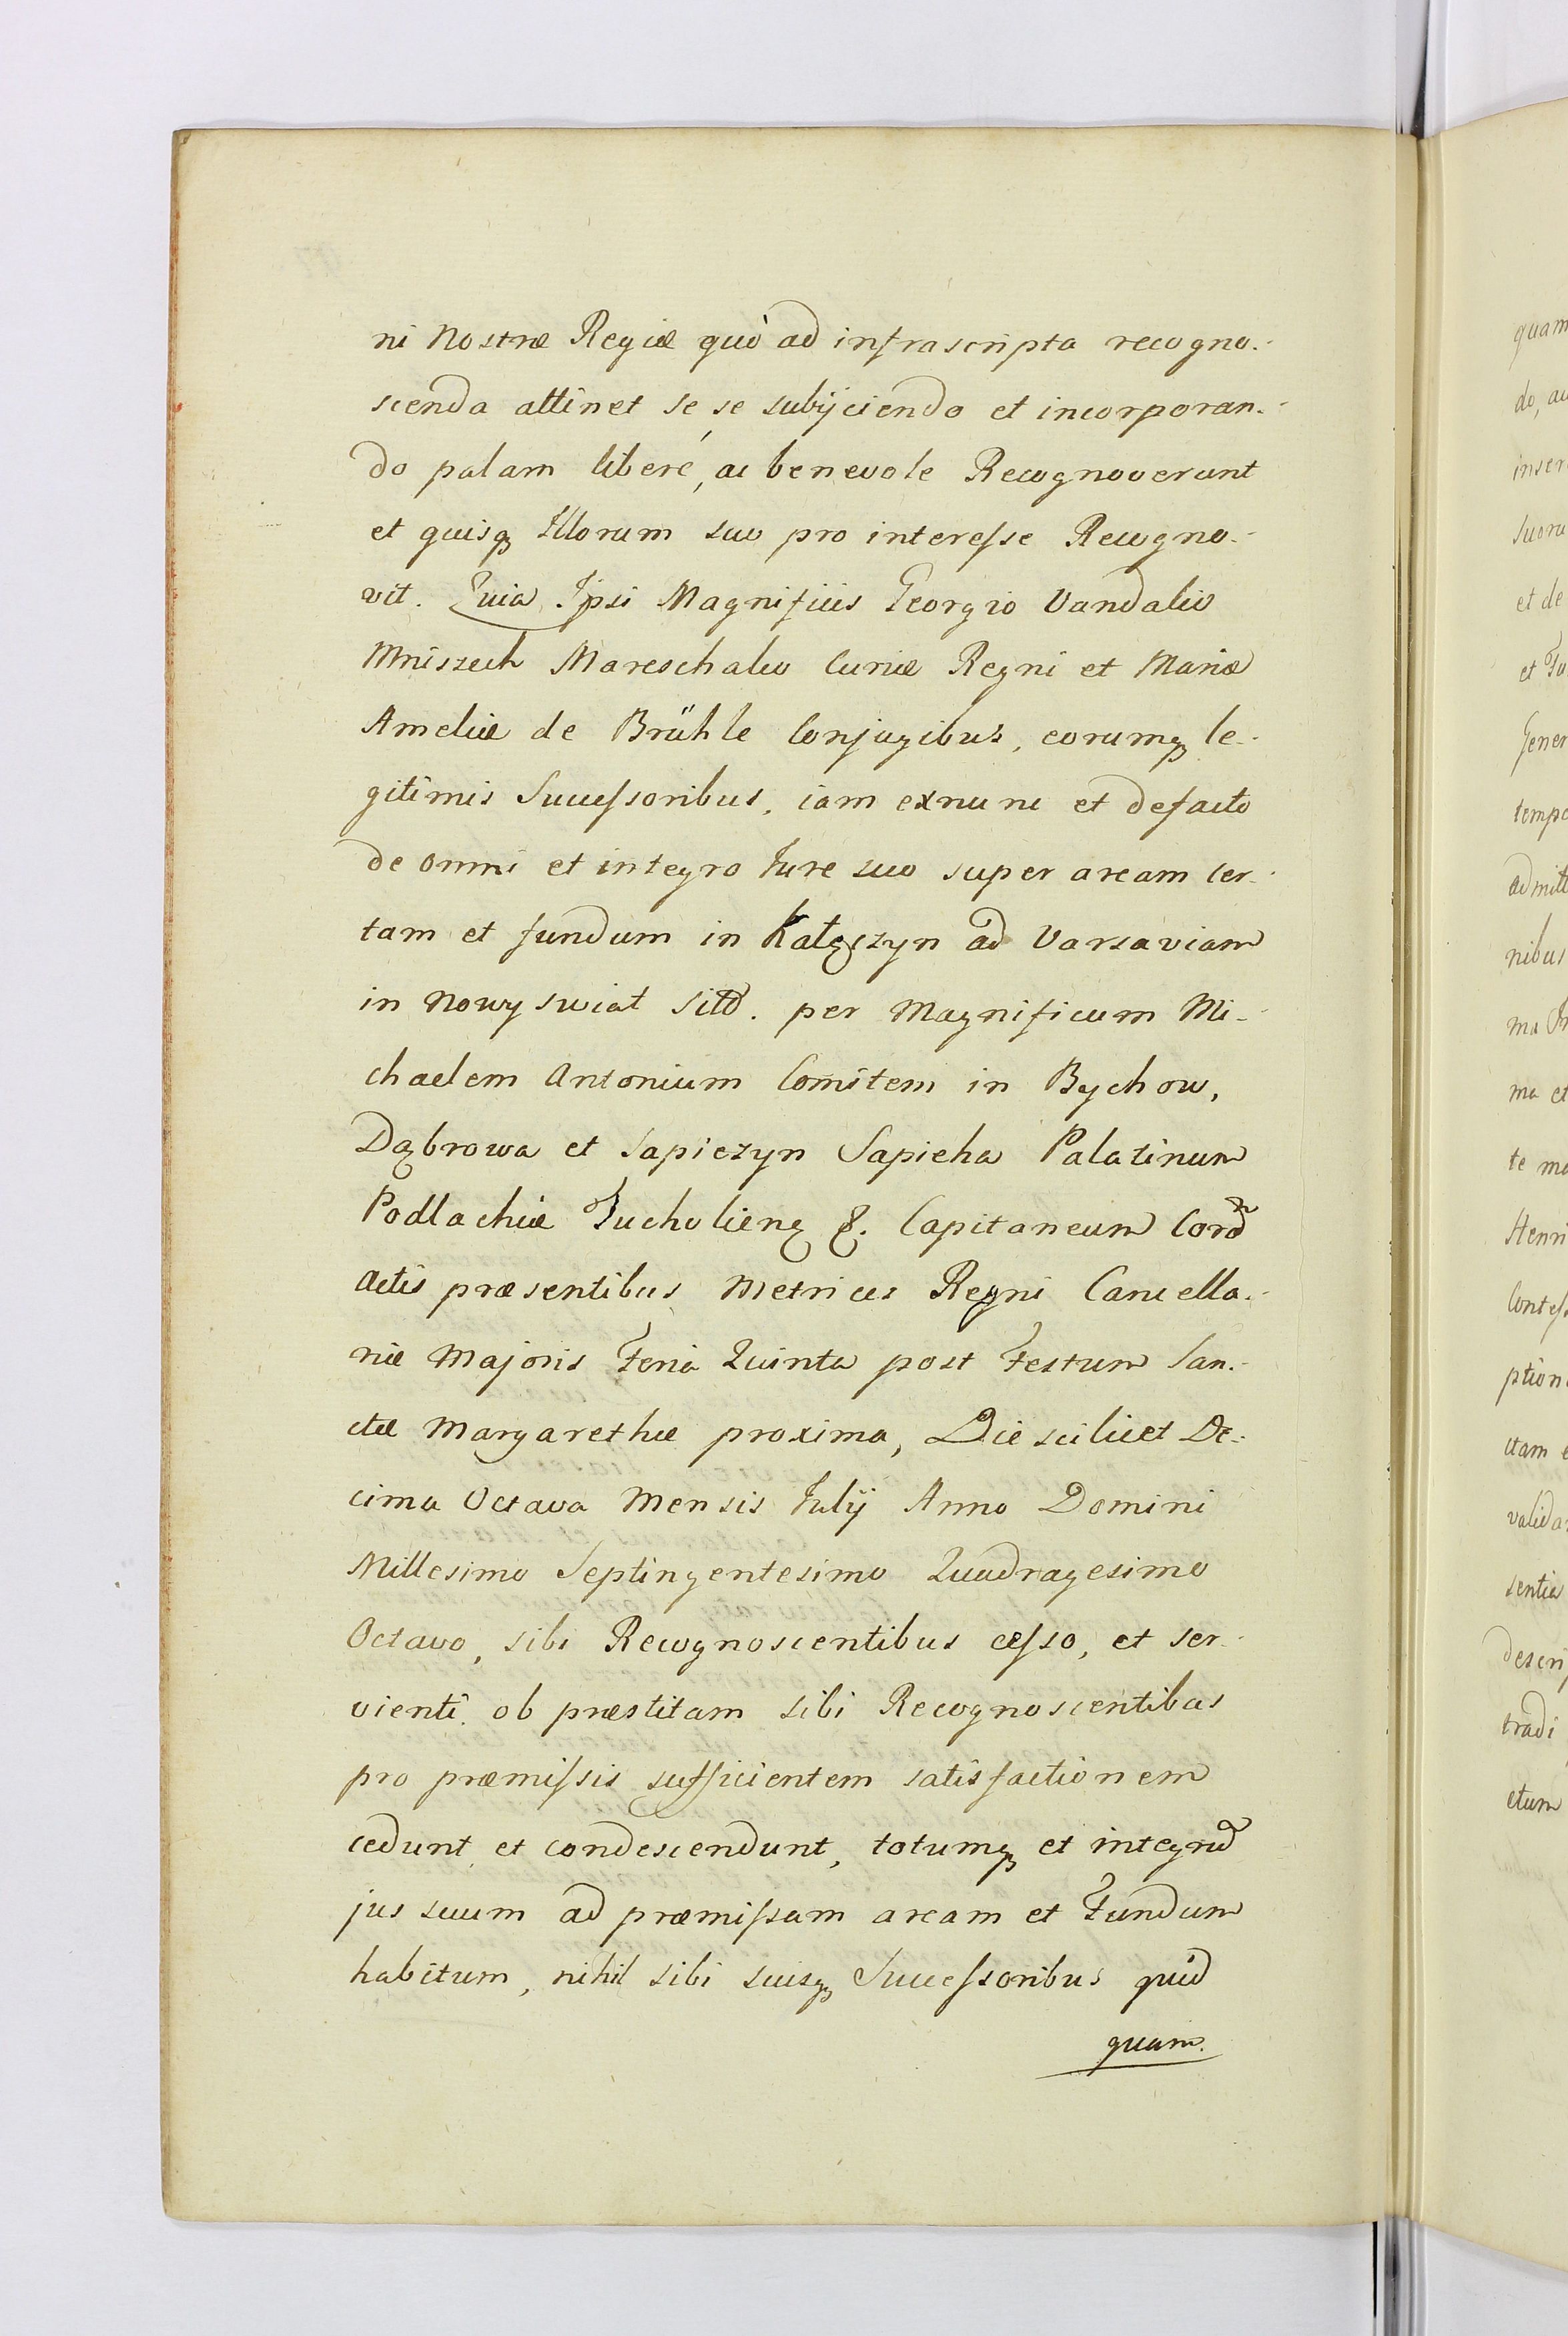 ni Nostræ Regiæ quò ad infrascripta recogno-
scenda attinet se se subijciendo et incorporan-
do palam liberé, ac benevole Recognoverunt
et quisq Illorum suo pro interesse Recogno-
vit. Quia Ipsi Magnificis Georgio Vandalio
Mniszech Mareschalco Curiæ Regni et Mariæ
Ameliæ de Brühle Conjugibus, eorumq le-
gitimis Successoribus, iam exnunc et defacto
de omni et integro Iure suo super aream cer-
tam et fundum in Kałęczyn ad Varsaviam
in Nowy swiat sitũ. per Magnificum Mi-
chaelem Antonium Comitem in Bychow,
Dąbrowa et Sapiezyn Sapieha Palatinum
Podlachiæ Tucholienę &. Capitaneum Corã
Actis præsentibus Metrices Regni Cancella-
riæ Majoris Feria Quinta post Festum San-
ctæ Margarethæ proxima, Die scilicet De-
cima Octava Mensis Iulij Anno Domini
Millesimo Septingentesimo Quadragesimo
Octavo, sibi Recognoscentibus cesso, et ser-
vienti. ob præstitam sibi Recognoscentibus
pro præmissis sufficientem satisfactionem
cedunt et condescendunt, totumq et integrũ
jus suum ad præmissam aream et Fundum
habitum, nihil sibi suisq Successoribus quid
quam.
quam
do, ac
inser
suoru
et de
Gener
tempo
admitt
nibus
ma et
te ma
Henri
Contess
ption
ctam e
valida
sentia
descrip
tradi
ctum